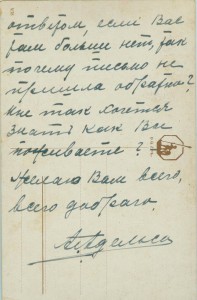 ответом, если Вас
там больше нет, так
почему письмо не
пришло обратно?
Мне так хочется
знать как Вы
поживаете?
Желаю Вам всего,
всего доброго.